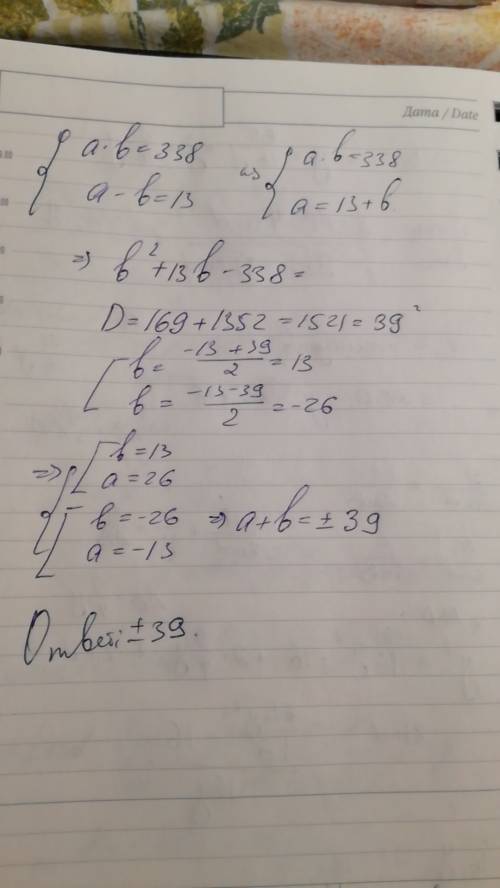 Дата / Date
{ a·b=338 <=> { a·b=338
a-b=13 a=13+b
=> b²+13b-338=
D=169+1352=1521=39²
[ b= (-13+39)/2 =13
b= (-13-39)/2 =-26
=> { [ b=13
a=26
[ b=-26 => a+b=±39
a=-13
Ответ: ±39.